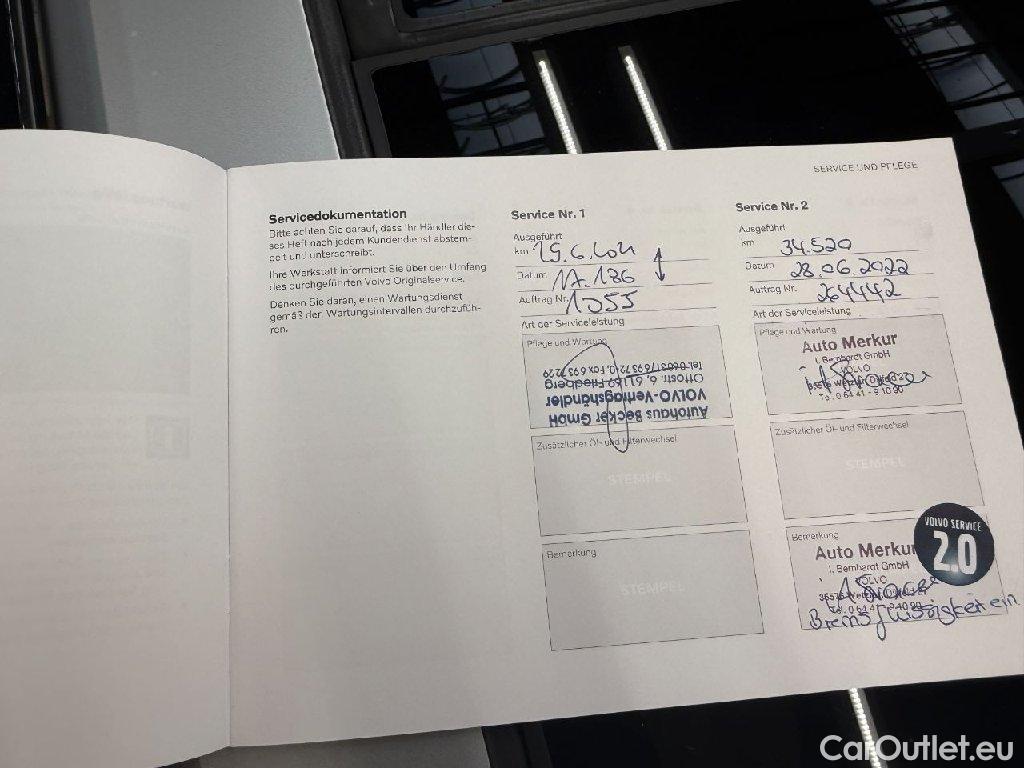 SERVICE UND PFLEGE
Servicedokumentation
Bitte achten Sie darauf, dass Ihr Händler die-
ses Heft nach jedem Kundendienst abstem-
pelt und unterschreibt.
Ihre Werkstatt informiert Sie über den Umfang
des durchgeführten Volvo Originalservice.
Denken Sie daran, einen Wartungsdienst
gemäß den Wartungsintervallen durchzufüh-
ren.
Service Nr. 1
Ausgeführt
km
Datum 17.186
Auftrag Nr. 1055
Art der Serviceleistung
Pflege und Wartung
Autohaus Becker GmbH
VOLVO-Vertragshändler
Ottostr. 6, 61169 Friedberg
Zusätzlicher Öl- und Filterwechsel
STEMPEL
Bemerkung
STEMPEL
Service Nr. 2
Ausgeführt
km 34.520
Datum 28.06.2022
Auftrag Nr. 264442
Art der Serviceleistung
Pflege und Wartung
Auto Merkur
Bernhardt GmbH
VOLVO
Zusätzlicher Öl- und Filterwechsel
STEMPEL
Bemerkung
Auto Merkur
Bernhardt GmbH
VOLVO
VOLVO SERVICE
2.0
CarOutlet.eu